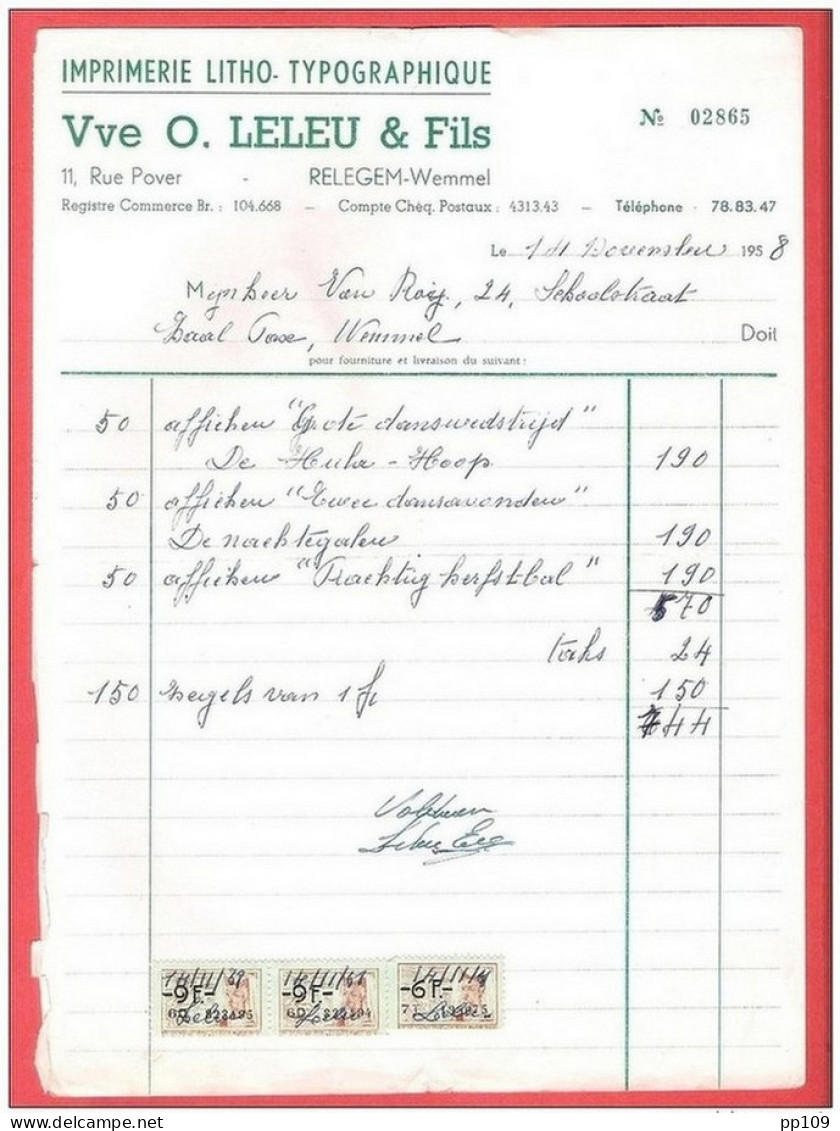 IMPRIMERIE LITHO-TYPOGRAPHIQUE
Vve O. LELEU & Fils
№ 02865
11, Rue Pover - RELEGEM-Wemmel
Registre Commerce Br. : 104.668 – Compte Chèq. Postaux : 4313.43 – Téléphone · 78.83.47
Le 14 November 1958
Mijnheer Van Roey, 24, Schoolstraat
Zaal Wemmel Doit
pour fourniture et livraison du suivant :
50 affichen "Grote danswedstrijd"
De Hoop 190
50 affichen "Twee dansavonden"
De nachtegalen 190
50 affichen "Prachtig herfst-bal" 190
570
taks 24
150 zegels van 1 fr 150
744
Voldaan
-9F.- -9F.- -6F.-
pp109